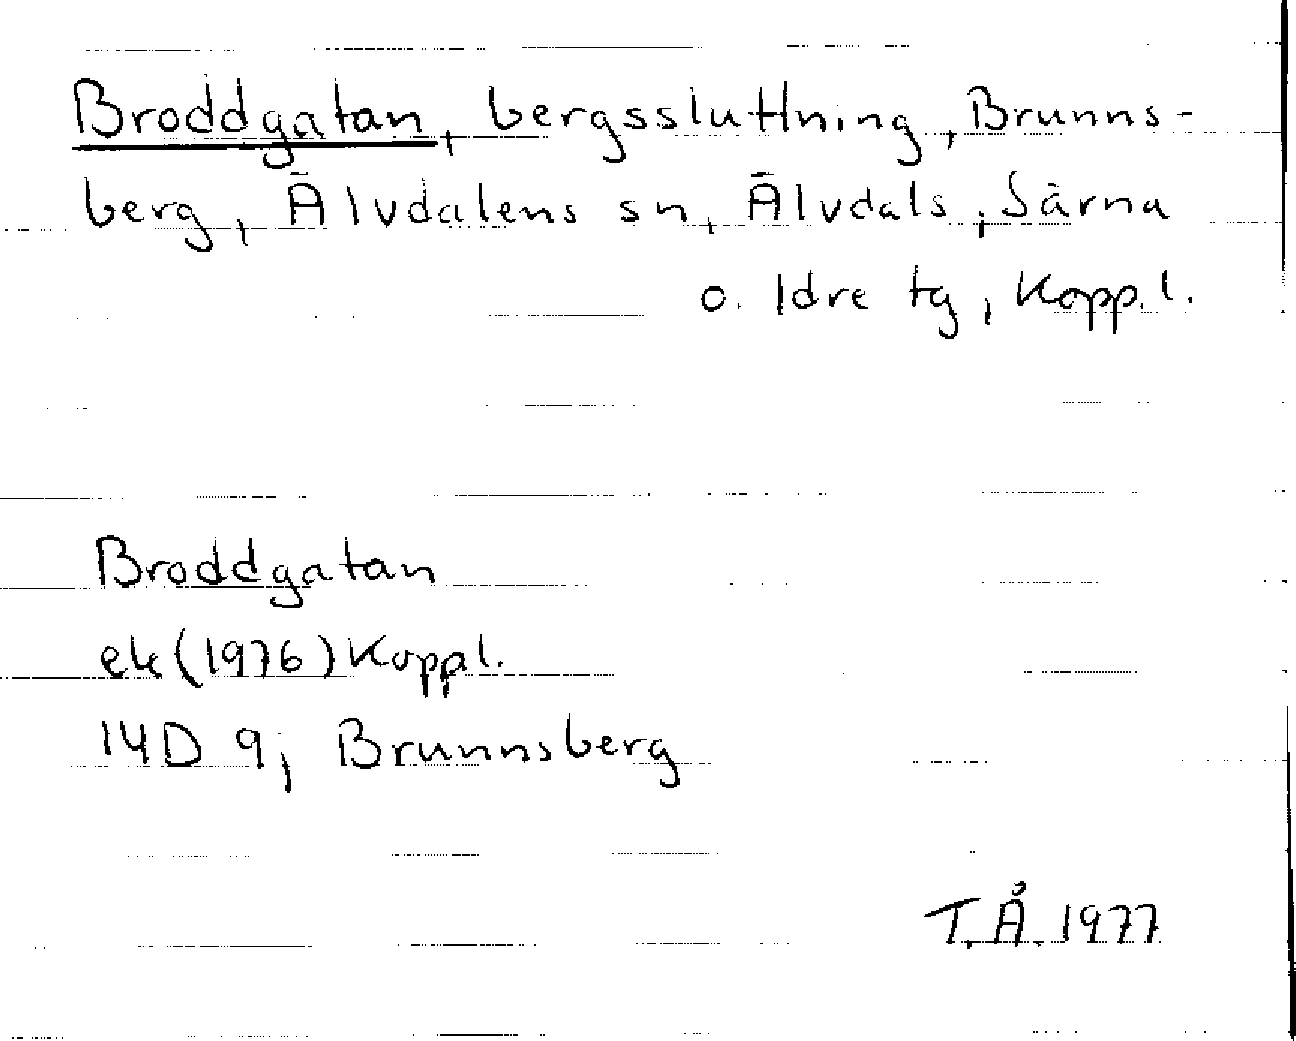 Broddgatan, bergssluttning, Brunns-
berg, Älvdalens sn, Älvdals, Särna
o. Idre tg, Kopp.l.
Broddgatan
ek (1976) Koppl.
14D 9j Brunnsberg
T.Å. 1977